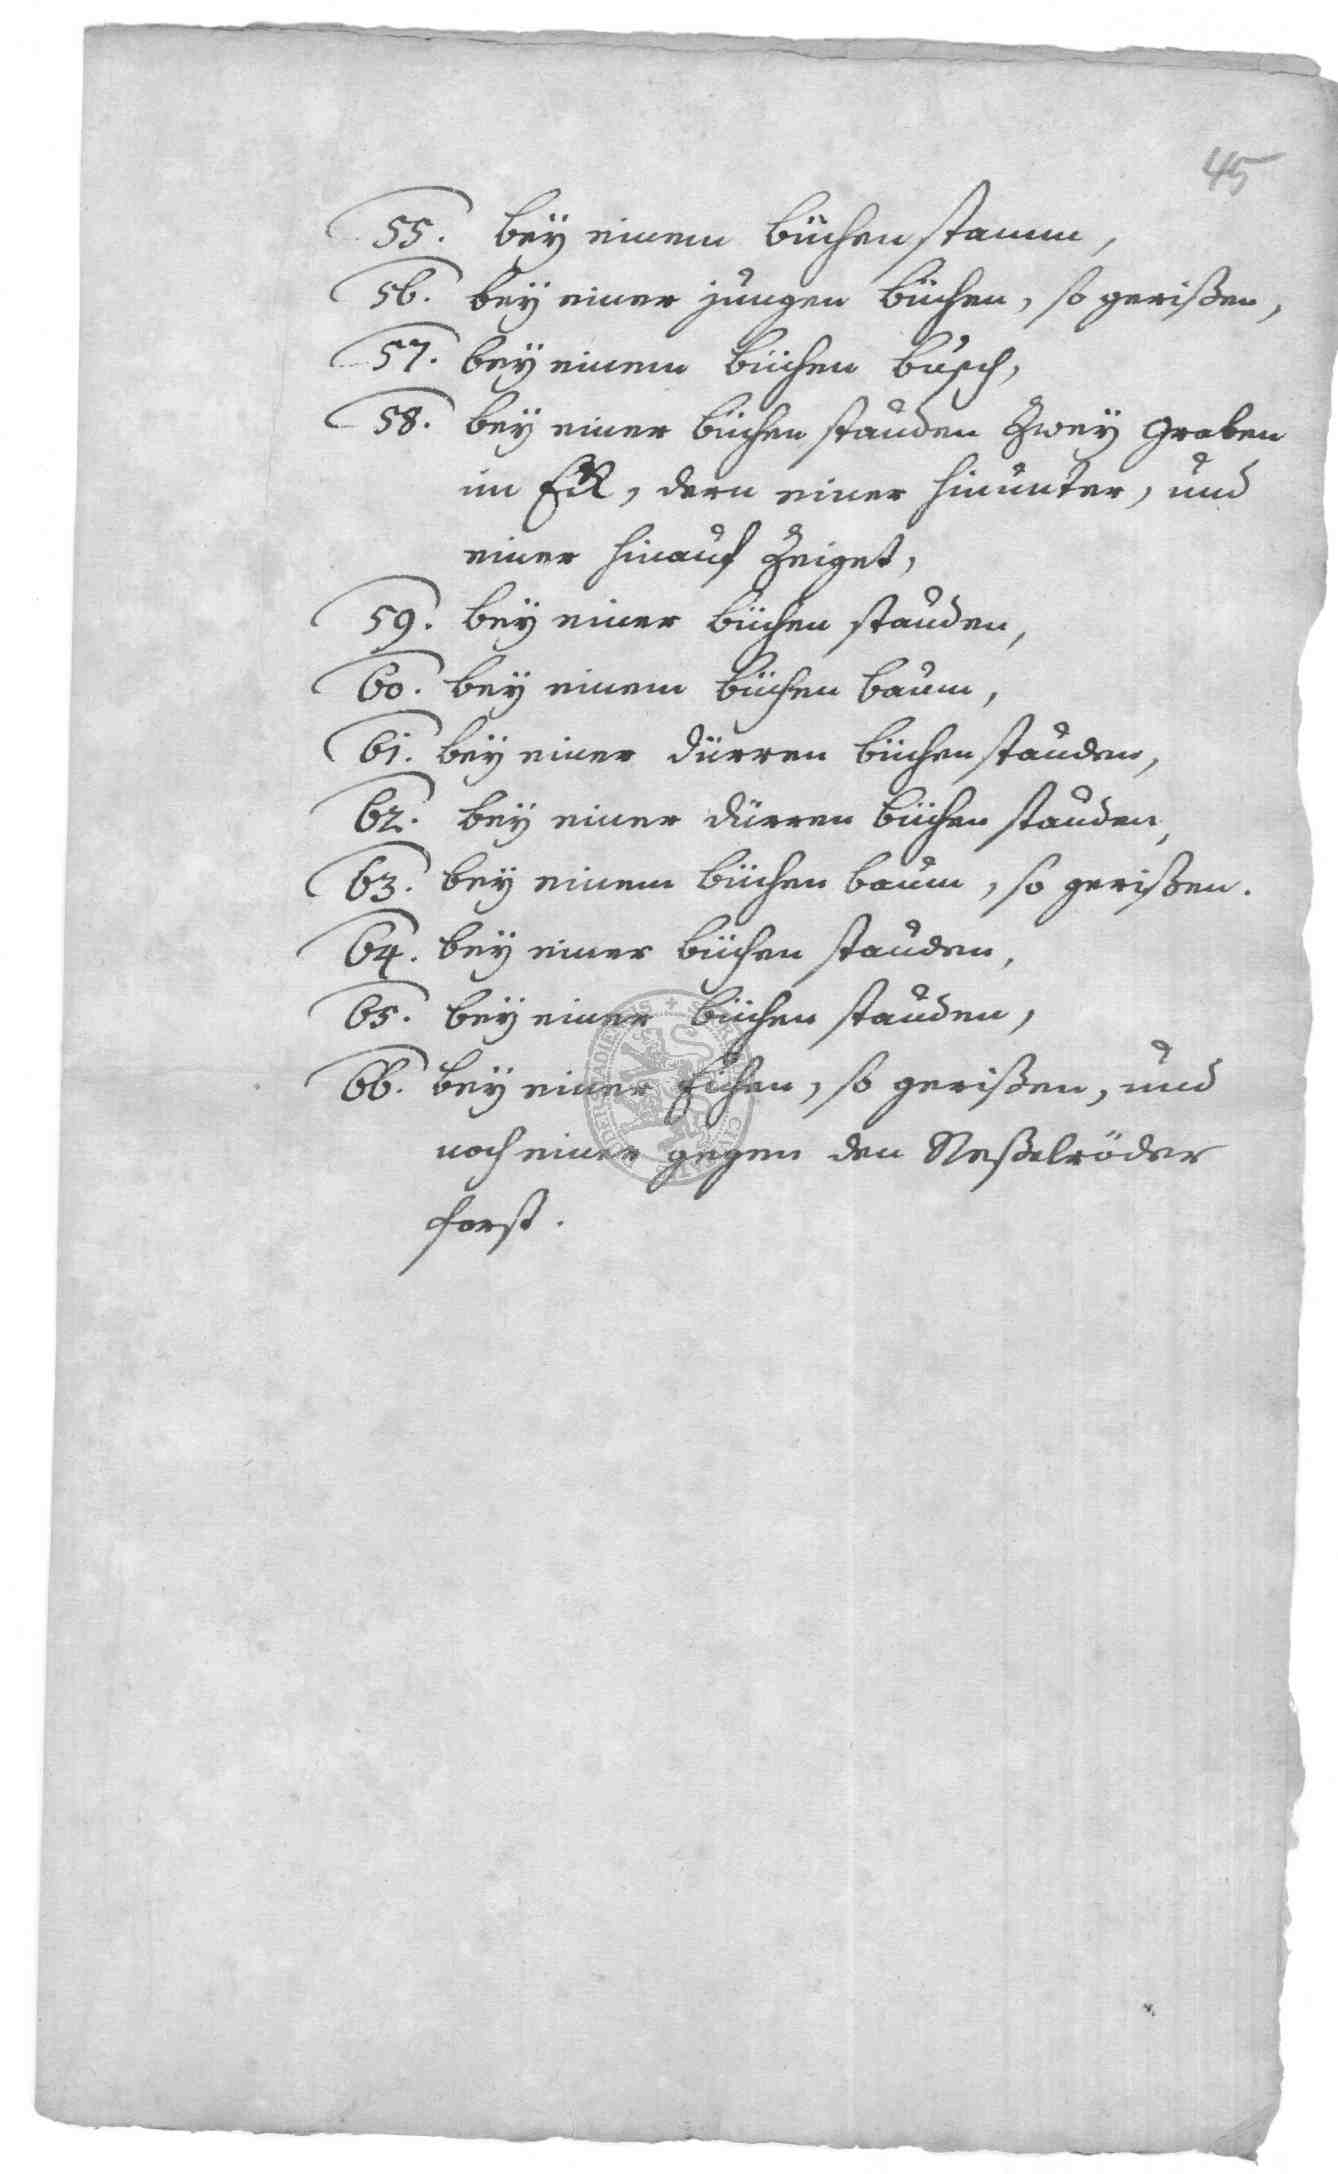 45
55. beÿ einem büchen stamm,
56. beÿ einer jungen büchen, so gerißen,
57. beÿ einem büchen busch,
58. beÿ einer büchen stauden Zweÿ graben
im Eck, dern einer hinunter, und
einer hinauf Zeiget,
59. beÿ einer büchen stauden,
60. beÿ einem büchen baum,
61. beÿ einer dürren büchen stauden,
62. beÿ einer dürren büchen stauden,
63. beÿ einem büchen baum, so gerißen.
64. beÿ einer büchen stauden,
65. beÿ einer büchen stauden,
66. beÿ einer Eichen, so gerißen, und
noch einer gegen den Neßelröder
forst.